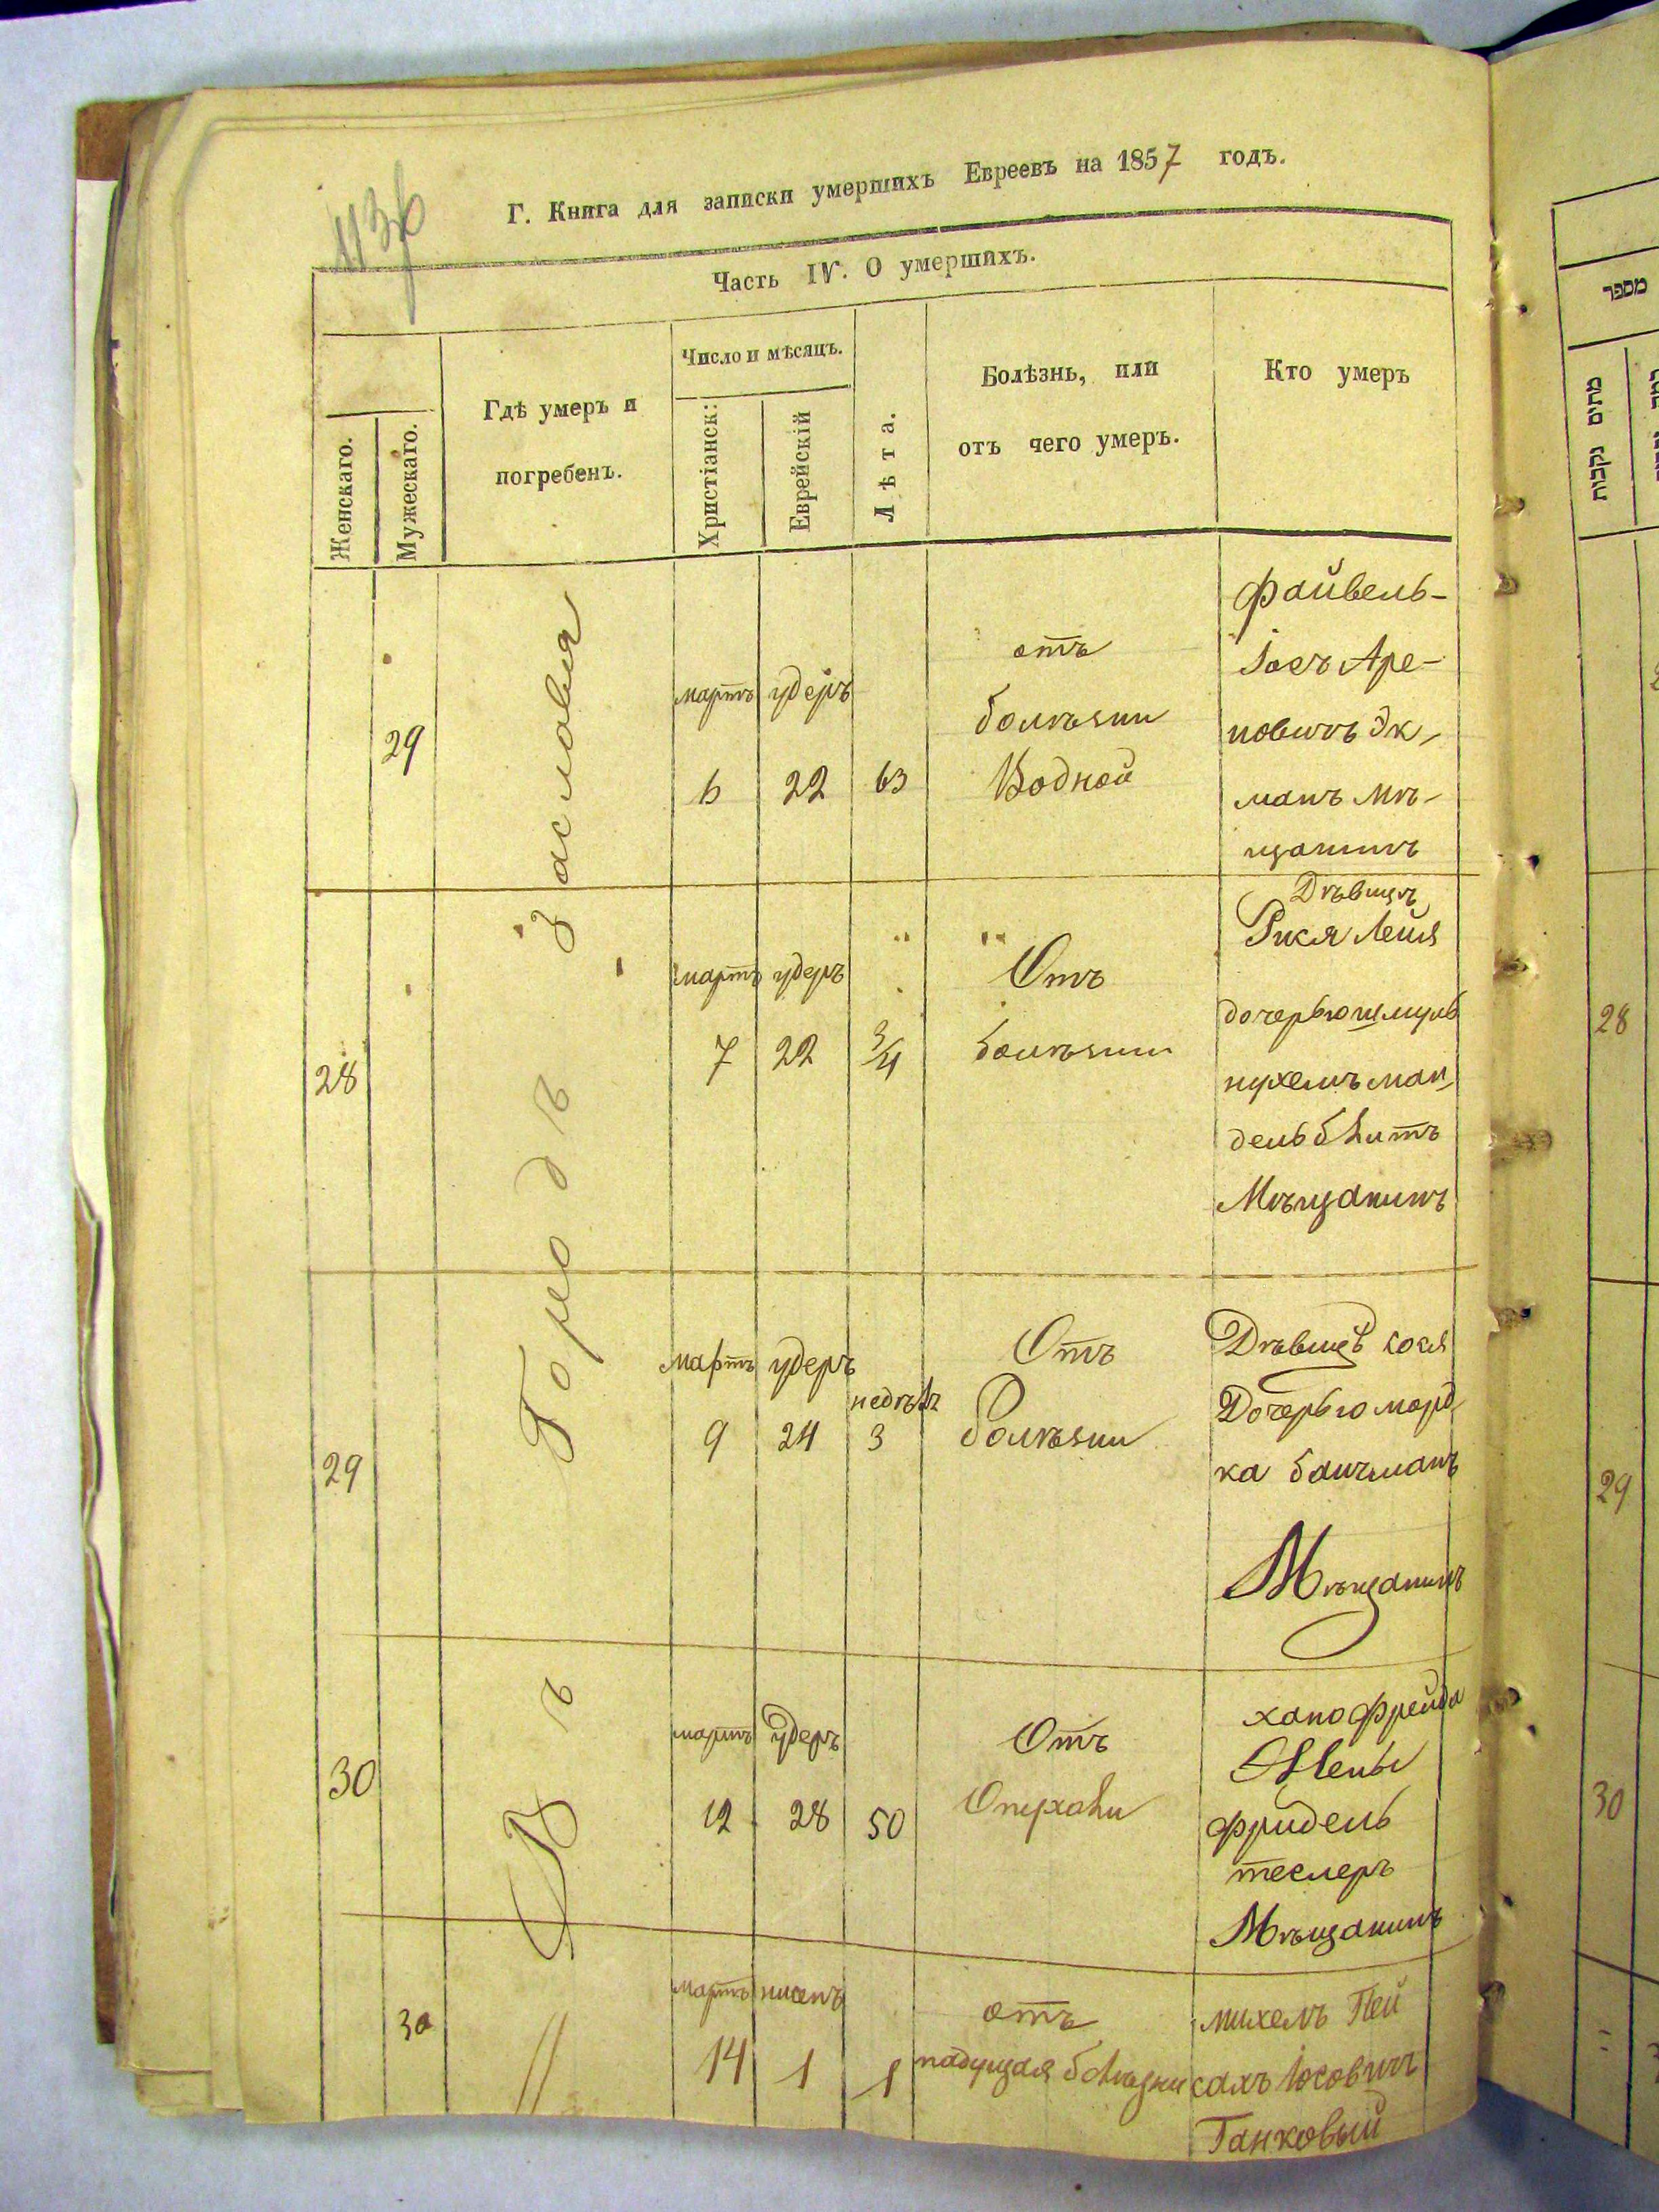 Г. Книга для записки умершихъ Евреевъ на 1857 годъ.
Часть IV. О умершихъ.
Женскаго.
Мужескаго.
Гдѣ умеръ и
погребенъ.
Число и мѣсяцъ.
Христіанск:
Еврейскій
Лѣта.
Болѣзнь, или
отъ чего умеръ.
Кто умеръ
Въ Городѣ Заславля
29
мартъ удеръ
6 22 63
отъ
болѣзни
Водной
Файвель-
Іосъ Аро-
новичъ Эк-
манъ мѣ-
щанинъ
28
мартъ удеръ
7 22 3/4
Отъ
болѣзни
Дѣвица
Рикля Лейя
дочерью шмуль
нухемъ ман
дель блитъ
Мѣщанинъ
29
мартъ удеръ
недѣль
9 24 3
Отъ
болѣзни
Дѣвица
Дочерью морд
ка
Мѣщанинъ
30
мартъ удеръ
12 28 50
Отъ
Опухоли
хано Фрейда
Жены
фридель
теслеръ
Мѣщанинъ
30
мартъ нисенъ
14 1 1
//
отъ
падущая болѣзни
михель Пей
сахъ Іосовичъ
Ганковый
מספר
מתים נקבות
28
29
30